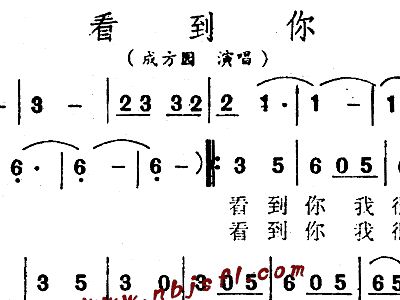 看到你
(成方圆 演唱)
- | 3 - | 23 32 | 2 1· | 1 - | 1
6· | 6 - | 6 - ) ‖: 3 5 | 6 05 |
看到你 我很
看到你 我很
| 3 5 | 3 0 | 3 05 | 6 05 | 65
www.nbjsfl.com